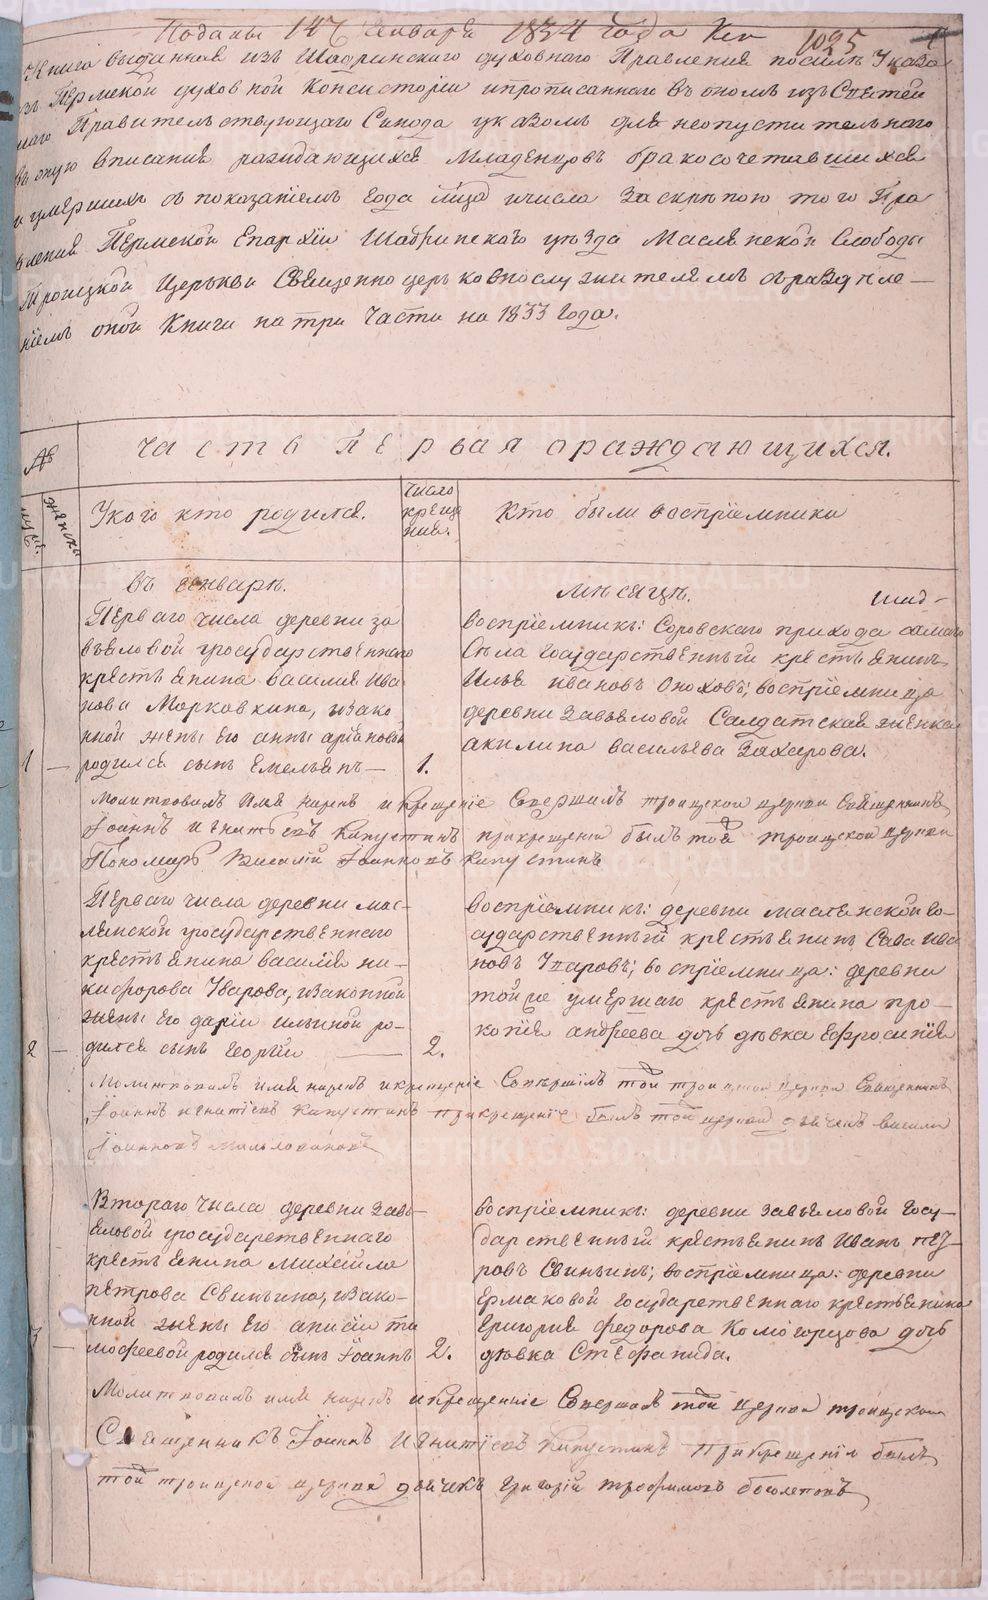 Поданы 14 Генваря 1834 Года
1095
Книга выданная изъ Шадринскаго духовнаго Правления посилѣ Указа
изъ Пермской духовной Консистории ипрописаннаго въ ономъ изъ Святей
шаго Правительствующаго Синода указомъ для неопустительнаго
въ оную вписания раждающихся младенцовъ бракосочетавшихся
и умершихъ съ показаниемъ года лицъ ичисла Заскрѣпою того Пра
вления Пермской Епархіи Шадринскаго уѣзда Маслянской Слободы
Троицкой Церькви Священноцерьковнослужителямъ съраздѣле—
ніемъ оной Книги натри Части на 1833 Года.
№
часть первая ораждающихся.
муж.
женска
Укого кто родился.
число
креще
ния.
Кто были восприемники
въ генварѣ.
мѣсяцѣ.
Перваго числа деревни за
въяловой государственнаго
крестьянина василия Ива
нова Морковкина, изако
нной жены его анны
родился сынъ Емельянъ —
1
—
1.
восприемникъ: Соровскаго прихода самаго
Села Государственный крестьянинъ
Илья ивановъ Оноховъ; восприемница
деревни Завьяловой Салдатская женка
акилина васильева Захарова.
Молитвовалъ Имя нареклъ и крещение Совершалъ троицкой церкви Священникъ
Іоаннъ игнатіевъ Капустинъ прикрещении былъ той троицкой церкви
Пономарь Василий Іоанновъ Капустинъ
Перваго числа деревни мас—
лянской государственнаго
крестьянина василия ни—
кифорова Уварова, изаконной
жены его дарьи ильиной ро—
дился сынъ георгий —
2
—
2.
восприемникъ: деревни маслянской го—
сударственный крестьянинъ Сава ива
новъ Уваровъ; восприемница: деревни
тойже умершаго крестьянина про—
копия андреева дочь дѣвка Ефросиния
Молитвовалъ имя нареклъ икрещение Совершилъ той троицкой церкви Священникъ
Іоаннъ игнатіевъ Капустинъ прикрещение былъ той церкви дьячекъ василий
Іоанновъ
Втораго Числа деревни завь—
яловой государственнаго
крестьянина михаила
петрова Свиньина, изако—
нной жены его анисьи ти
мофеевой родился сынъ Іоаннъ
3
—
2.
восприемникъ: деревни завьяловой Госу—
дарственный крестьянинъ Иванъ пет
ровъ Свиньинъ; восприемница: деревни
Ермаковой Государственнаго крестьянина
григория федорова Коммогорцова дочь
дѣвка Стефанида.
Молитвовалъ имя нареклъ икрещение Совершалъ той церкви троицкой
Священникъ Іоаннъ Игнатіевъ Капустинъ При крещении былъ
той троицкой церкви дьячекъ григорий трофимовъ боголеповъ